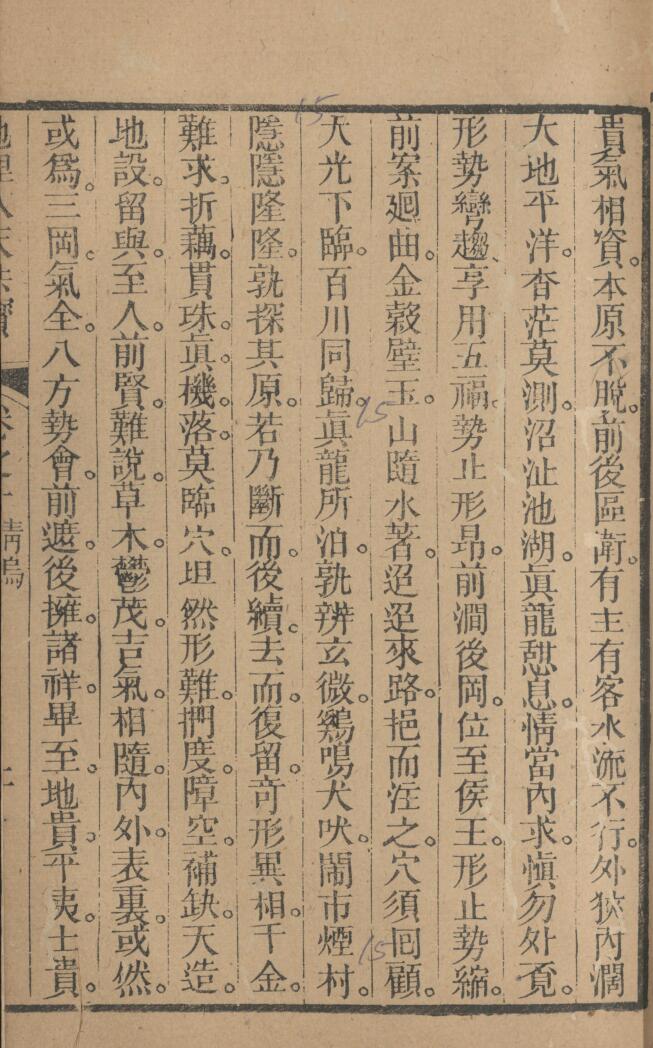 貴氣相資。本原不脫。前後區衛。有主有客水流不行。外狹內濶
大地平洋。杳茫莫測。沼沚池湖。眞龍憇息。情當內求。愼勿外覔。
形勢彎趨、享用五福。勢止形昂。前澗後岡。位至侯王。形止勢縮。
前案廻曲。金穀璧玉。山隨水著。迢迢來路。挹而注之。穴須回顧。
天光下臨。百川同歸。眞龍所泊。孰辨玄微。鷄鳴犬吠。鬧市煙村。
隱隱隆隆。孰探其原。若乃斷而後續。去而復留。奇形異相。千金
難求。折藕。貫珠。眞機。落莫臨穴。坦然形難。捫度。障空。補缺。天造。
地設。留與。至人。前賢。難說。草木。鬱茂。吉氣。相隨。內外。表裏。或然。
或爲。三岡。氣全。八方勢會。前遮。後擁。諸祥。畢至。地貴。平夷。士貴。
卷之十 靑烏
15
15
15